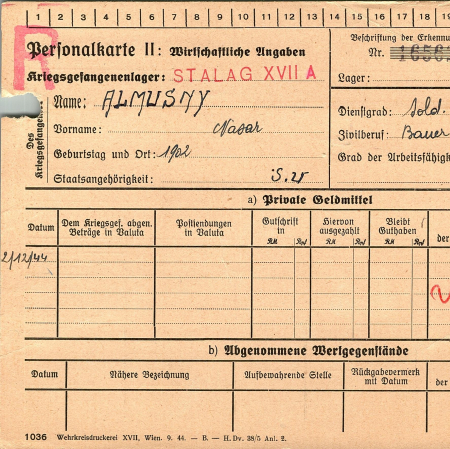 1 2 3 4 5 6 7 8 9 10 11 12 13 14 15 16 17 18 19
R
Personalkarte II: Wirtschaftliche Angaben
Beschriftung der Erkennu
Nr. 16563
Kriegsgefangenenlager: STALAG XVII A
Lager:
Des Kriegsgefangenen
Name: ALMUSNY
Dienstgrad: Sold.
Vorname: Nasar
Zivilberuf: Bauer
Geburtstag und Ort: 1902
Grad der Arbeitsfähigk
Staatsangehörigkeit:
a) Private Geldmittel
Datum
Dem Kriegsgef. abgen. Beträge in Valuta
Postsendungen in Valuta
Gutschrift in
RM Rpf
Hiervon ausgezahlt
RM Rpf
Bleibt Guthaben
RM Rpf
der
2/12/44
b) Abgenommene Wertgegenstände
Datum
Nähere Bezeichnung
Aufbewahrende Stelle
Rückgabevermerk mit Datum
der
1036 Wehrkreisdruckerei XVII, Wien. 9. 44. — B. — H. Dv. 38/5 Anl. 2.